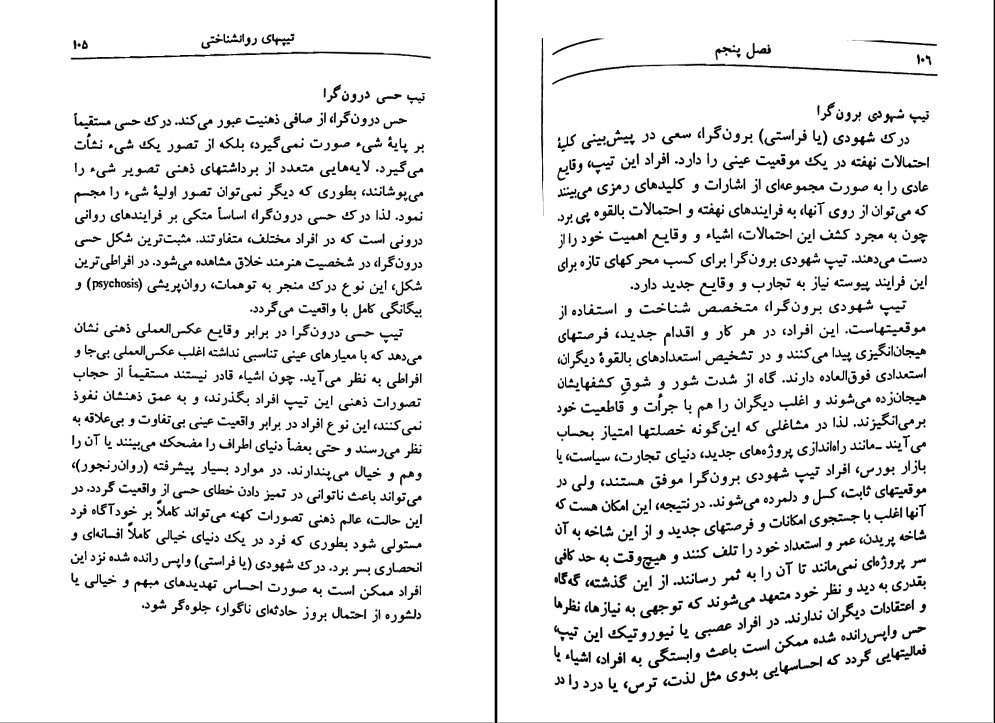 تیپهای روانشناختی ۱۰۵
تیپ حسی درون‌گرا
حس درون‌گرا، از صافی ذهنیت عبور می‌کند. درک حسی مستقیماً
بر پایهٔ شیء صورت نمی‌گیرد، بلکه از تصور یک شیء نشأت
می‌گیرد. لایه‌هایی متعدد از برداشتهای ذهنی تصویر شیء را
می‌پوشانند، بطوری که دیگر نمی‌توان تصور اولیهٔ شیء را مجسم
نمود. لذا درک حسی درون‌گرا، اساساً متکی بر فرایندهای روانی
درونی است که در افراد مختلف، متفاوتند. مثبت‌ترین شکل حسی
درون‌گرا، در شخصیت هنرمند خلاق مشاهده می‌شود. در افراطی‌ترین
شکل، این نوع درک منجر به توهمات، روان‌پریشی (psychosis) و
بیگانگی کامل با واقعیت می‌گردد.
تیپ حسی درون‌گرا در برابر وقایع عکس‌العملی ذهنی نشان
می‌دهد که با معیارهای عینی تناسبی نداشته اغلب عکس‌العملی بی‌جا و
افراطی به نظر می‌آید. چون اشیاء قادر نیستند مستقیماً از حجاب
تصورات ذهنی این تیپ افراد بگذرند، و به عمق ذهنشان نفوذ
نمی‌کنند، این نوع افراد در برابر واقعیت عینی بی‌تفاوت و بی‌علاقه به
نظر می‌رسند و حتی بعضاً دنیای اطراف را مضحک می‌بینند یا آن را
وهم و خیال می‌پندارند. در موارد بسیار پیشرفته (روان‌رنجور)،
می‌تواند باعث ناتوانی در تمیز دادن خطای حسی از واقعیت گردد. در
این حالت، عالم ذهنی تصورات کهنه می‌تواند کاملاً بر خودآگاه فرد
مستولی شود بطوری که فرد در یک دنیای خیالی کاملاً افسانه‌ای و
انحصاری بسر برد. درک شهودی (یا فراستی) واپس رانده شده نزد این
افراد ممکن است به صورت احساس تهدیدهای مبهم و خیالی یا
دلشوره از احتمال بروز حادثه‌ای ناگوار، جلوه‌گر شود.
۱۰۶ فصل پنجم
تیپ شهودی برون‌گرا
درک شهودی (یا فراستی) برون‌گرا، سعی در پیش‌بینی کلیهٔ
احتمالات نهفته در یک موقعیت عینی را دارد. افراد این تیپ، وقایع
عادی را به صورت مجموعه‌ای از اشارات و کلیدهای رمزی می‌بینند
که می‌توان از روی آنها، به فرایندهای نهفته و احتمالات بالقوه پی برد.
چون به مجرد کشف این احتمالات، اشیاء و وقایع اهمیت خود را از
دست می‌دهند. تیپ شهودی برون‌گرا برای کسب محرکهای تازه برای
این فرایند پیوسته نیاز به تجارب و وقایع جدید دارد.
تیپ شهودی برون‌گرا، متخصص شناخت و استفاده از
موقعیتهاست. این افراد، در هر کار و اقدام جدید، فرصتهای
هیجان‌انگیزی پیدا می‌کنند و در تشخیص استعدادهای بالقوهٔ دیگران،
استعدادی فوق‌العاده دارند. گاه از شدت شور و شوقِ کشفهایشان
هیجان‌زده می‌شوند و اغلب دیگران را هم با جرأت و قاطعیت خود
برمی‌انگیزند. لذا در مشاغلی که این‌گونه خصلتها امتیاز بحساب
می‌آیند ـ مانند راه‌اندازی پروژه‌های جدید، دنیای تجارت، سیاست، یا
بازار بورس، افراد تیپ شهودی برون‌گرا موفق هستند، ولی در
موقعیتهای ثابت، کسل و دلمرده می‌شوند. در نتیجه، این امکان هست که
آنها اغلب با جستجوی امکانات و فرصتهای جدید و از این شاخه به آن
شاخه پریدن، عمر و استعداد خود را تلف کنند و هیچ‌وقت به حد کافی
سر پروژه‌ای نمی‌مانند تا آن را به ثمر رسانند. از این گذشته، گه‌گاه
بقدری به دید و نظر خود متعهد می‌شوند که توجهی به نیازها، نظرها
و اعتقادات دیگران ندارند. در افراد عصبی یا نیوروتیک این تیپ،
حس واپس‌رانده شده ممکن است باعث وابستگی به افراد، اشیاء یا
فعالیتهایی گردد که احساسهایی بدوی مثل لذت، ترس، یا درد را در